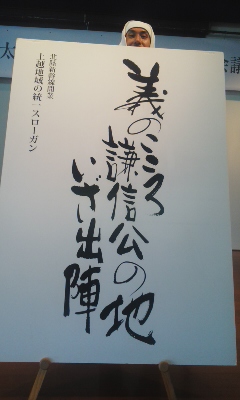 北陸新幹線開業
上越地域の統一スローガン
義のこころ
謙信公の地
いざ出陣
太
会議